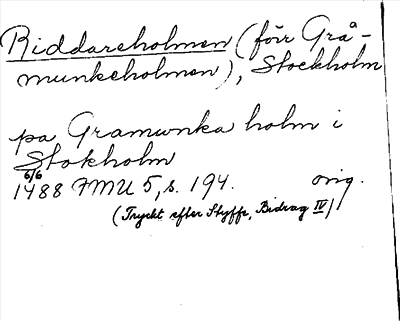 Riddareholmen (förr Grå-
munkeholmen), Stockholm
pa Gramunka holm i
Stokholm
6/6
1488 FMU 5, s. 194. orig.
(Tryckt efter Styffe, Bidrag IV)